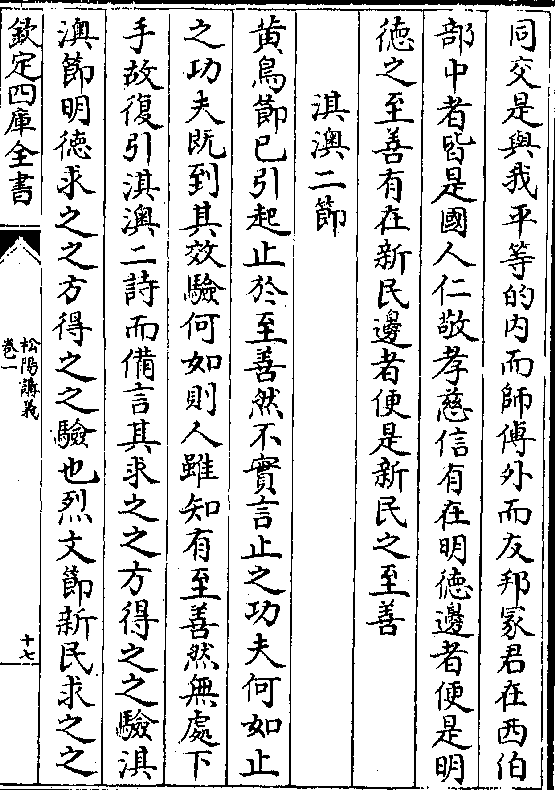 同交是與我平等的内而師傅外而友邦冢君在西伯
部中者皆是國人仁敬孝慈信有在明徳邊者便是明
徳之至善有在新民邊者便是新民之至善
淇澳二節
黄鳥節已引起止於至善然不實言止之功夫何如止
之功夫既到其效驗何如則人雖知有至善然無處下
手故復引淇澳二詩而備言其求之之方得之之驗淇
澳節明徳求之之方得之之驗也烈文節新民求之之
欽定四庫全書
松陽講義
卷一
十七